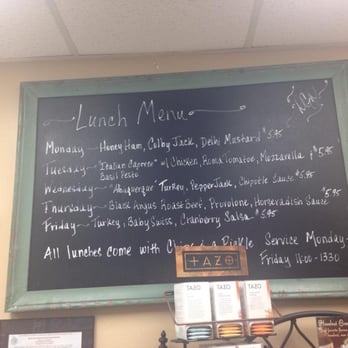 Lunch Menu
Monday — Honey Ham, Colby Jack, Delhi Mustard $5.95
Tuesday — "Italian Caprese" w/ Chicken, Roma Tomatoe, Mozzarella &
Basil Pesto $5.95
Wednesday — "Albuquerque" Turkey, PepperJack, Chipotle Sauce $5.95
Thursday — Black Angus Roast Beef, Provolone, Horseradish Sauce $5.95
Friday — Turkey, Baby Swiss, Cranberry Salsa $5.95
All lunches come with Chips & a Pickle
Service Monday-
Friday 1100-1330
TAZO
TAZO TAZO TAZO